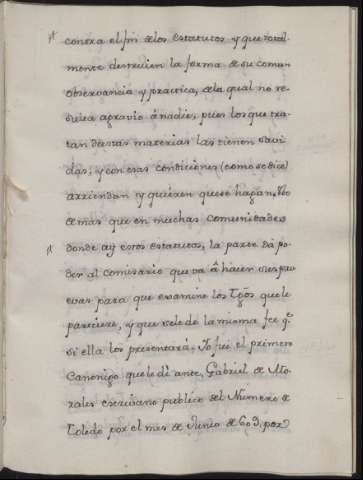 contra el fin de los estatutos y que total-
mente destruien la forma de su comun
observancia y practica, de la qual no re-
sulta agravio á nadie, pues los que tra-
tan destas materias las tienen savi-
das, y con esas condiciones (como se dice)
arriendan y quieren que se hagan. Lo
demas que en muchas comunidades
donde ay estos estatutos, la parte da po-
der al comisario que va â hacer sus pru
evas para que examine los tgos que le
pareciere, y que se le de la misma fee q.e
si ella los presentara. Yo fui el primero
Canonigo que le dì ante Gabriel de Mo-
rales escrivano publico del Numero de
Toledo por el mes de Junio de 609, por